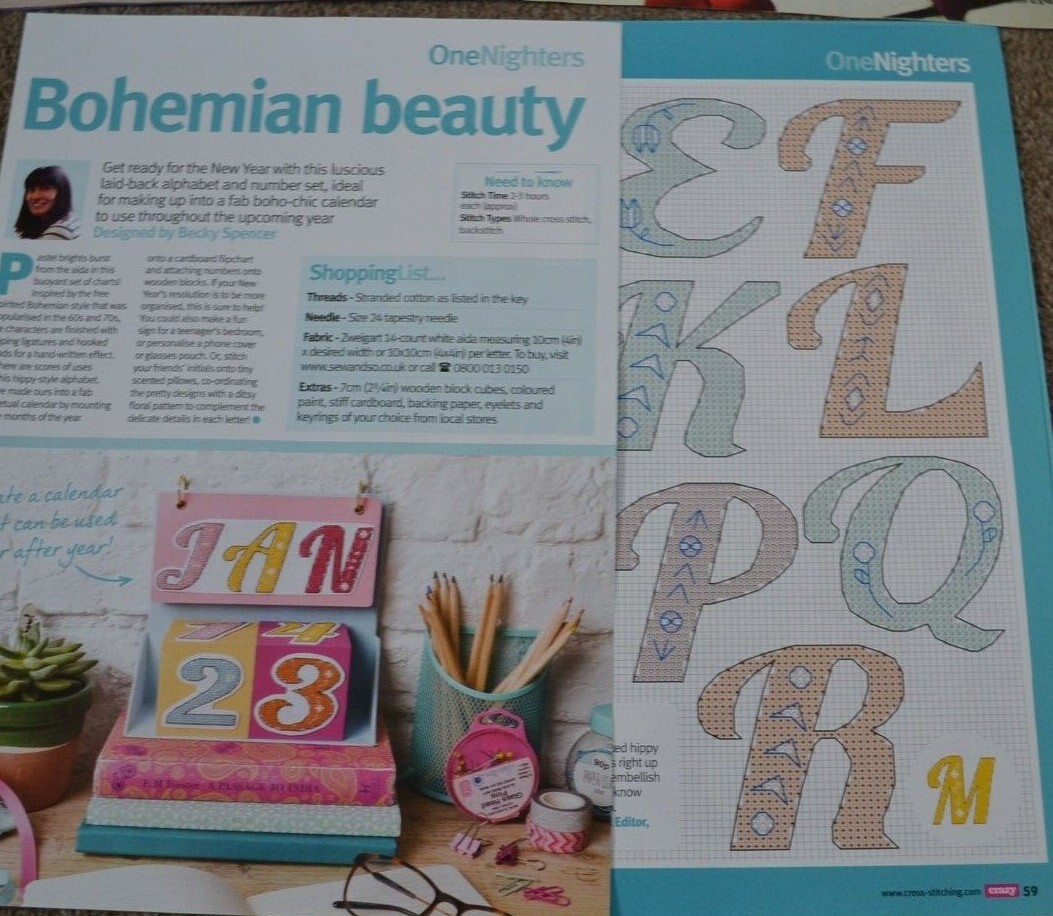 OneNighters
Bohemian beauty
Get ready for the New Year with this luscious
laid-back alphabet and number set, ideal
for making up into a fab boho-chic calendar
to use throughout the upcoming year
Designed by Becky Spencer
Need to know
Stitch Time 2-3 hours
each (approx)
Stitch Types Whole cross stitch,
backstitch
Pastel brights burst
from the aida in this
buoyant set of charts!
Inspired by the free
Bohemian style that was
in the 60s and 70s,
characters are finished with
ligatures and hooked
for a hand-written effect.
here are scores of uses
his hippy-style alphabet.
made ours into a fab
calendar by mounting
months of the year
onto a cardboard flipchart
and attaching numbers onto
wooden blocks. If your New
Year's resolution is to be more
organised, this is sure to help!
You could also make a fun
sign for a teenager's bedroom,
or personalise a phone cover
or glasses pouch. Or, stitch
your friends' initials onto tiny
scented pillows, co-ordinating
the pretty designs with a ditsy
floral pattern to complement the
delicate details in each letter!
ShoppingList...
Threads - Stranded cotton as listed in the key
Needle - Size 24 tapestry needle
Fabric - Zweigart 14-count white aida measuring 10cm (4in)
x desired width or 10x10cm (4x4in) per letter. To buy, visit
www.sewandso.co.uk or call ☎ 0800 013 0150
Extras - 7cm (2¾in) wooden block cubes, coloured
paint, stiff cardboard, backing paper, eyelets and
keyrings of your choice from local stores
ate a calendar
t can be used
r after year!
JAN
23
A PASSAGE TO INDIA
Glass Head
Pins
OneNighters
E F
K L
P Q
R
M
ed hippy
s right up
embellish
know
Editor,
www.cross-stitching.com crazy 59